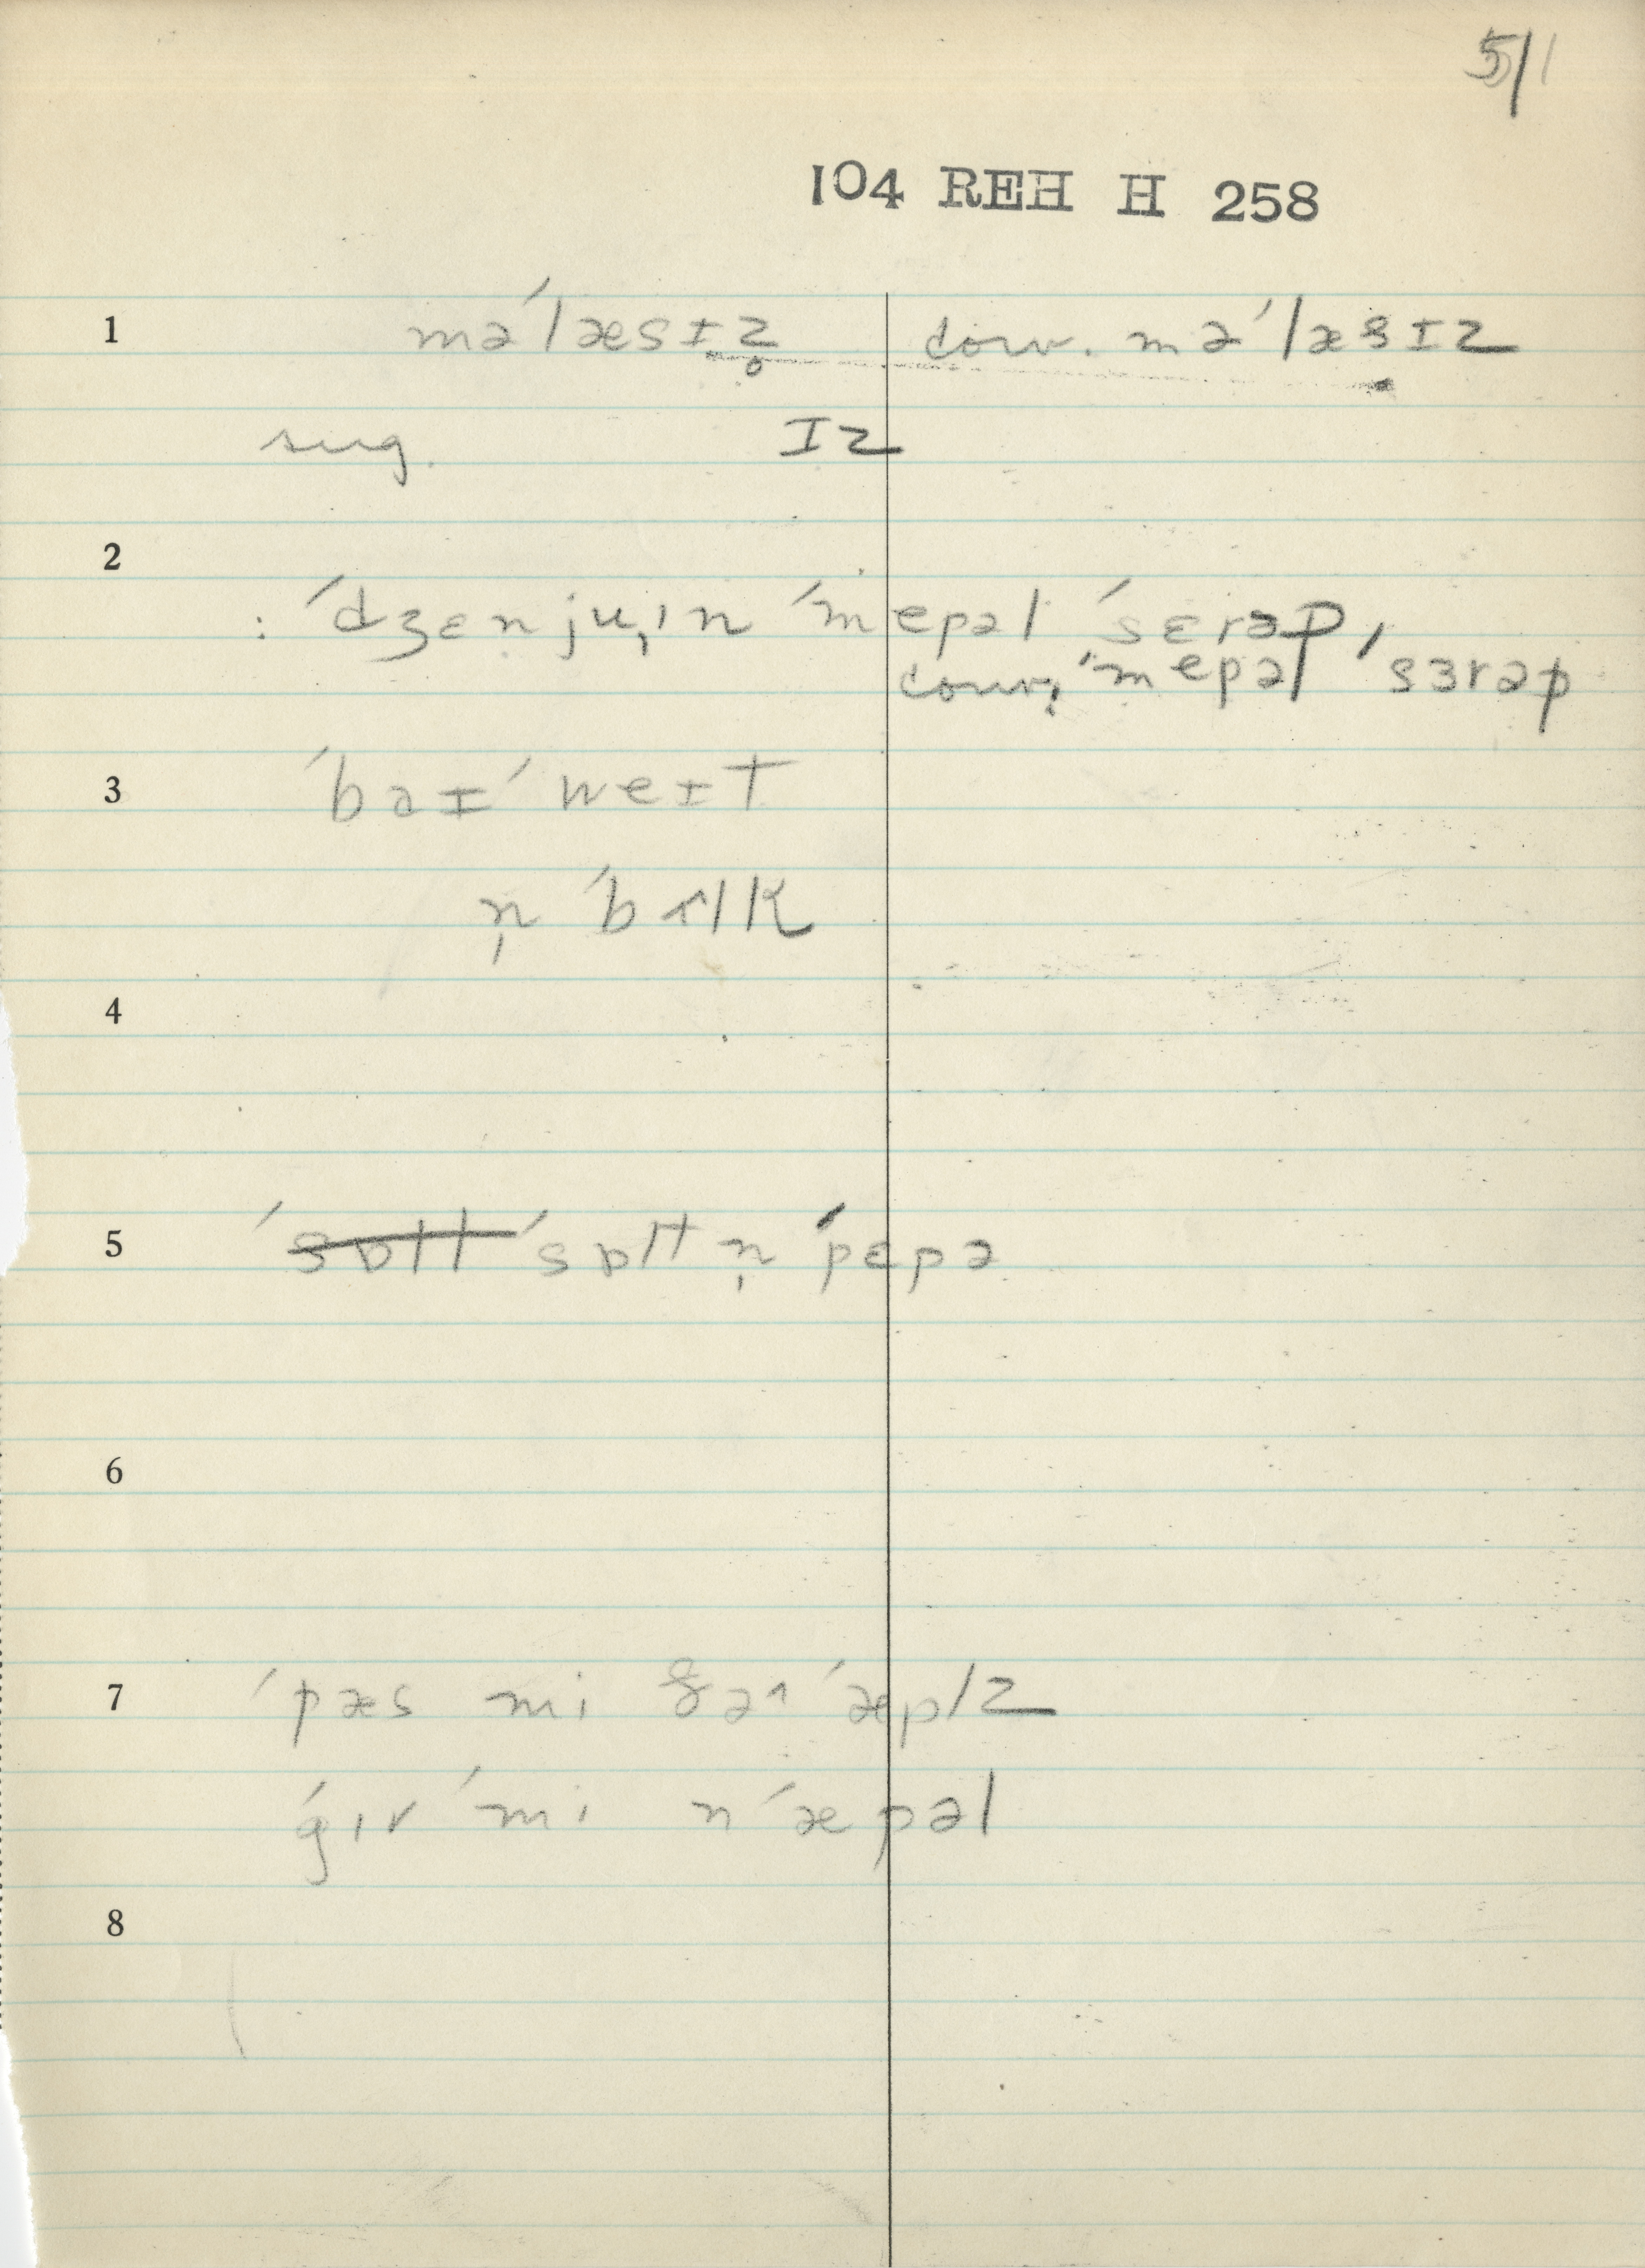 5/1
104 REH H 258
1 mə´læsɪz̥ conv. mə´læsɪz
sug. ɪz
2
: ´dʒɛnjuˌɪn ´mepəl ´sɛrəp,
conv. ´mepəl ´sɜrəp
3 ´baɪ ´weɪt
n̩ ´bʌlk
4
5 ´sɒlt ´sɒlt n̩ ´pɛpə
6
7 ´pæs mi ðə ´æplz
´gɪv ´mi n ´æpəl
8